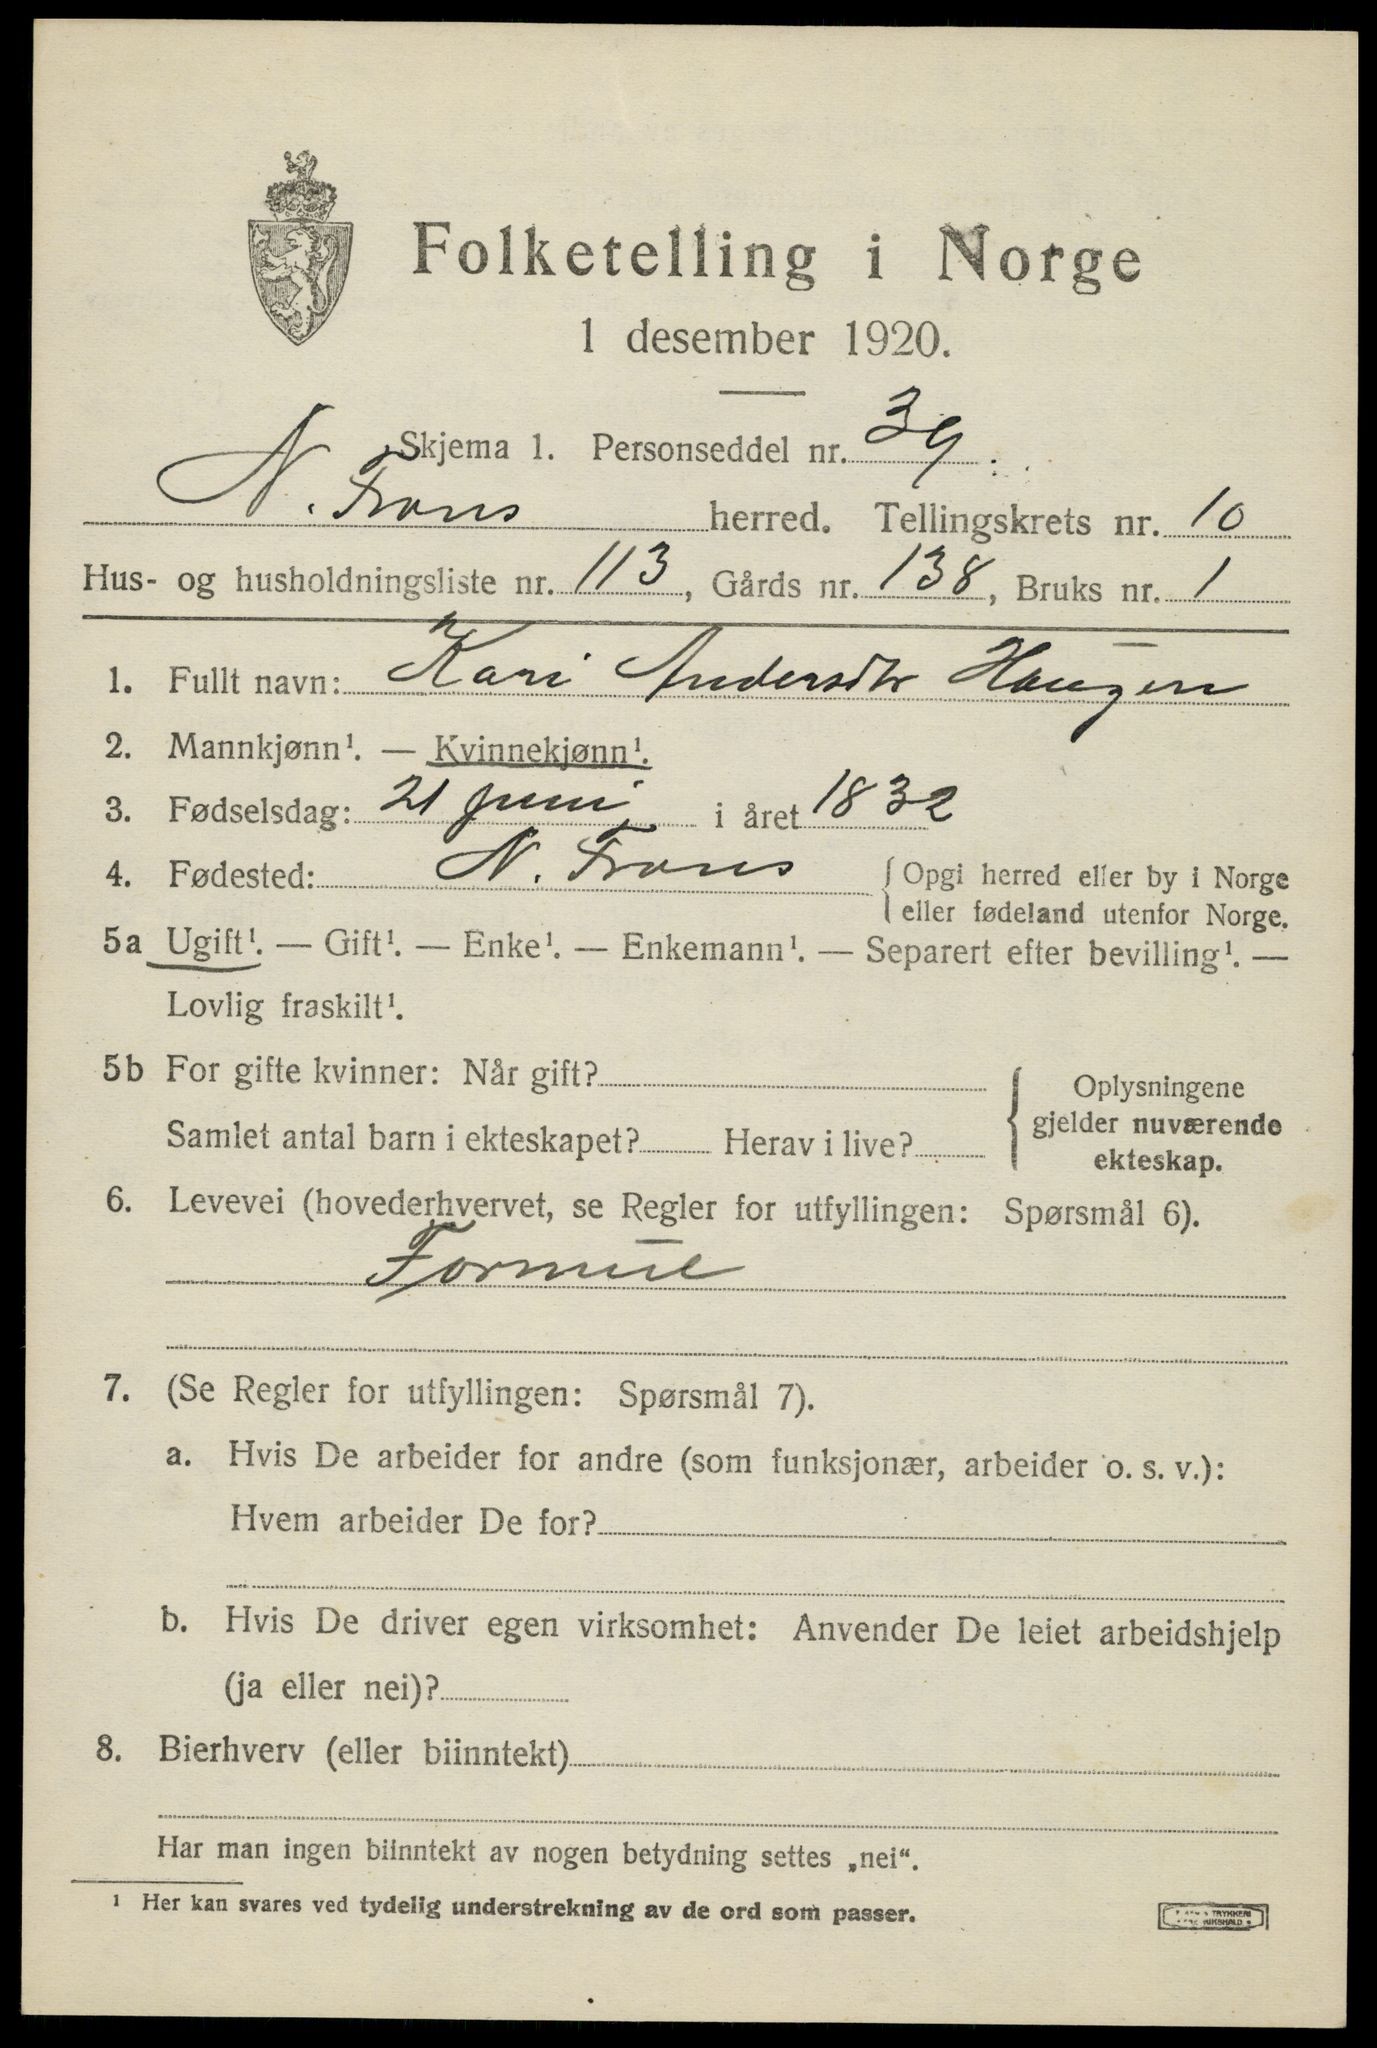 Folketelling i Norge
1 desember 1920.
Skjema 1. Personseddel nr. 39
N. Frons herred. Tellingskrets nr. 10
Hus- og husholdningsliste nr. 113, Gårds nr. 138, Bruks nr. 1
1. Fullt navn: Kari Andersdtr Haugen
2. Mannkjønn¹. — Kvinnekjønn¹.
3. Fødselsdag: 21 juni i året 1832
4. Fødested: N. Frons { Opgi herred eller by i Norge
eller fødeland utenfor Norge.
5a Ugift¹. — Gift¹. — Enke¹. — Enkemann¹. — Separert efter bevilling¹. —
Lovlig fraskilt¹.
5b For gifte kvinner: Når gift? { Oplysningene
gjelder nuværende
Samlet antal barn i ekteskapet? Herav i live? ekteskap.
6. Levevei (hovederhvervet, se Regler for utfyllingen: Spørsmål 6).
Formue
7. (Se Regler for utfyllingen: Spørsmål 7).
a. Hvis De arbeider for andre (som funksjonær, arbeider o. s. v.):
Hvem arbeider De for?
b. Hvis De driver egen virksomhet: Anvender De leiet arbeidshjelp
(ja eller nei)?
8. Bierhverv (eller biinntekt)
Har man ingen biinntekt av nogen betydning settes „nei“.
¹ Her kan svares ved tydelig understrekning av de ord som passer.